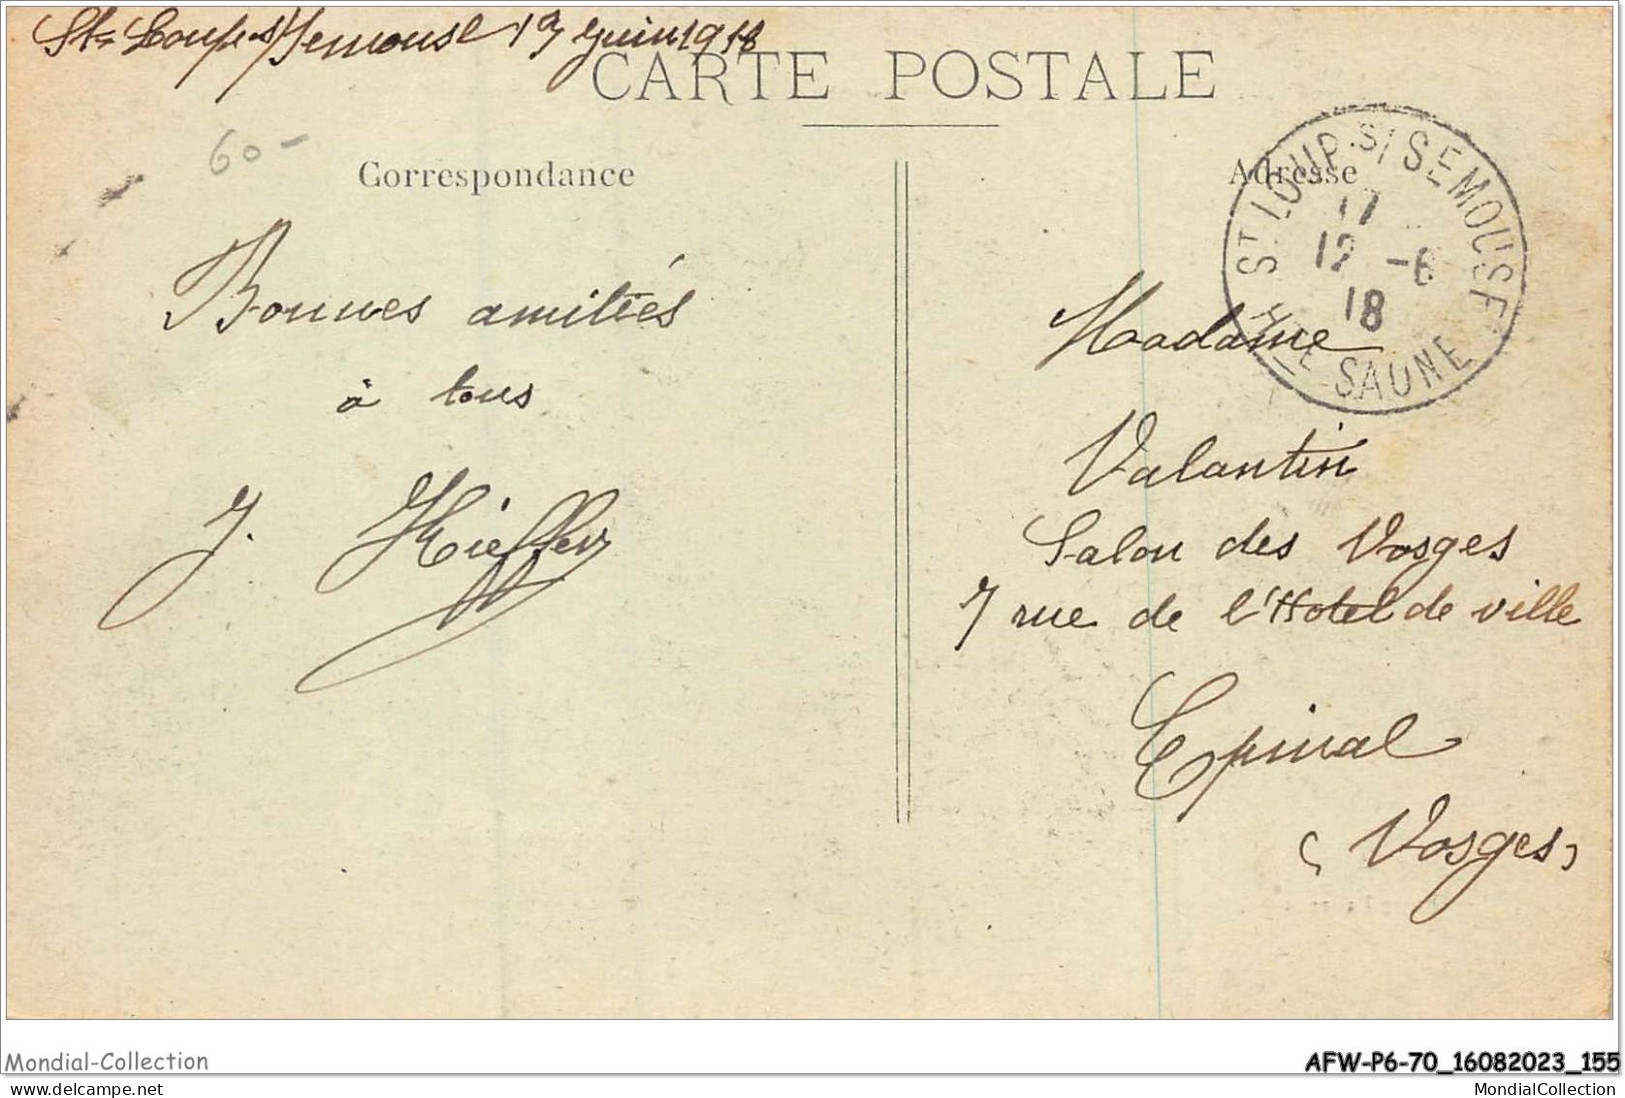 St Loup s/Semouse 13 Juin 1918
CARTE POSTALE
60-
Correspondance
Adresse
ST LOUP-S/SEMOUSE
17
12 -6
18
HTE SAONE
Bonnes amitiés
à tous
J. Kieffer
Madame
Valantin
Salon des Vosges
7 rue de l'Hotel de ville
Epinal
(Vosges)
Mondial-Collection
AFW-P6-70_16082023_155
www.delcampe.net
MondialCollection